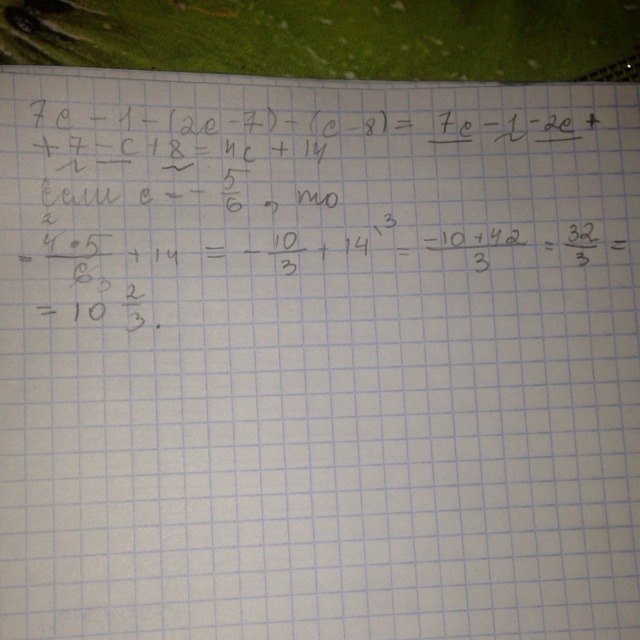 7c - 1 - (2c - 7) - (c - 8) = 7c - 1 - 2c +
+ 7 - c + 8 = 4c + 14
Если c = - 5/6, то
= - 4·5/6 + 14 = - 10/3 + 14 = -10+42/3 = 32/3 =
= 10 2/3.